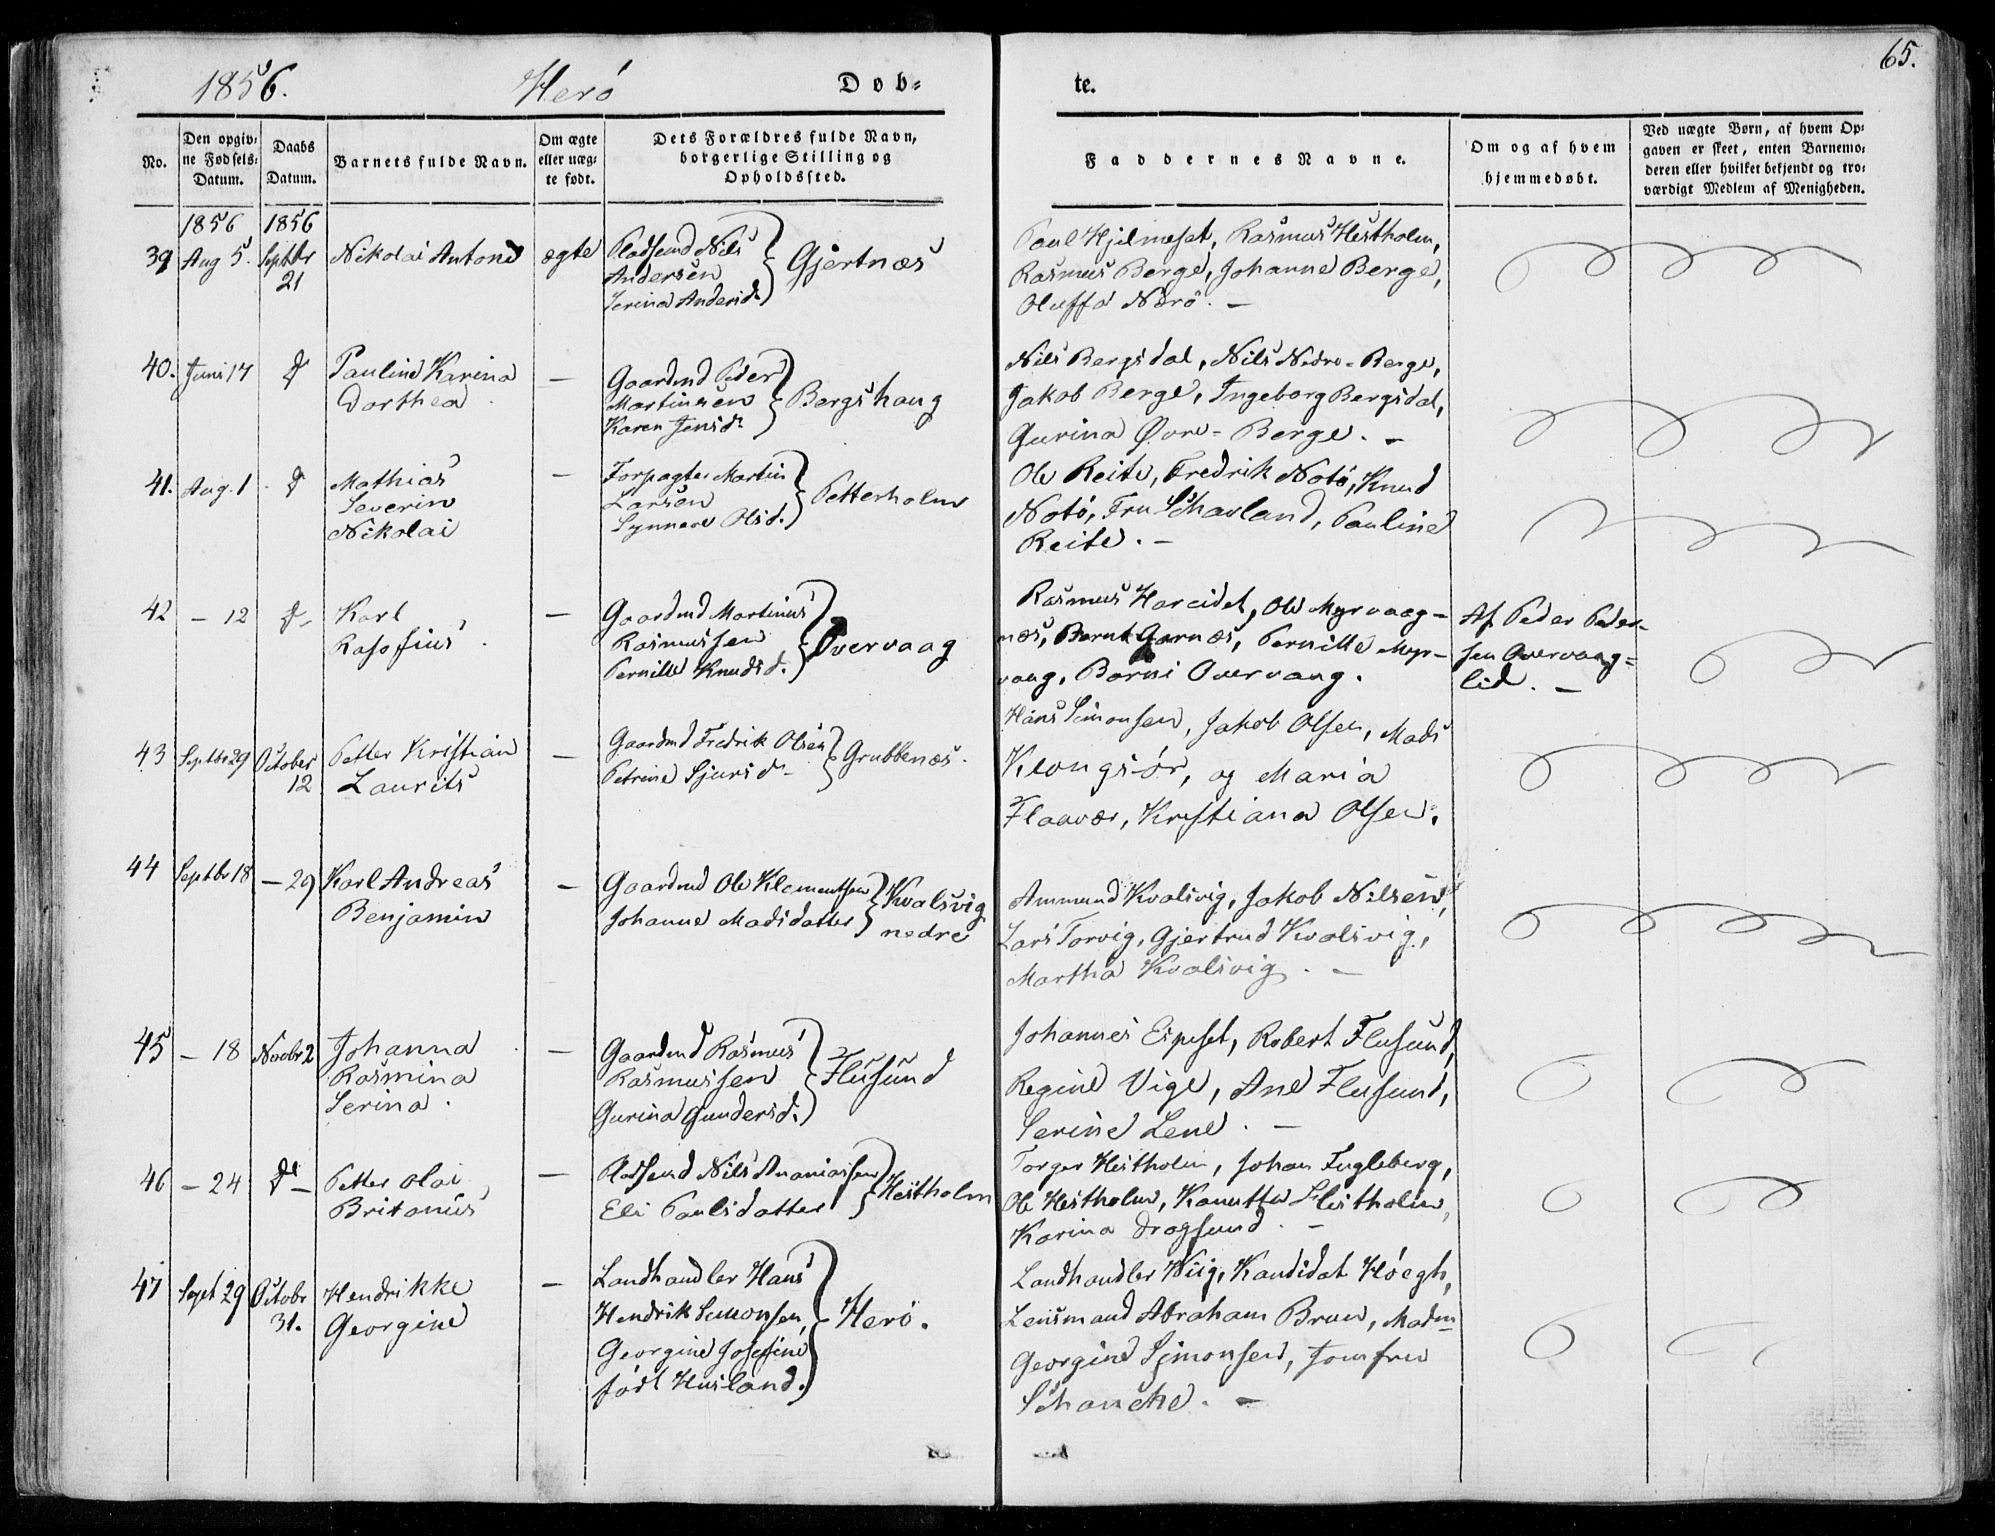 65.
1856. Herö Døb= te.
No.
Den opgiv-
ne Fødsels-
Datum.
Daabs
Datum.
Barnets fulde Navn.
Om ægte
eller uæg-
te født.
Dets Forældres fulde Navn,
borgerlige Stilling og
Opholdssted.
Faddernes Navne.
Om og af hvem
hjemmedøbt.
Ved uægte Børn, af hvem Op-
gaven er skeet, enten Barnemo-
deren eller hvilket bekjendt og tro-
værdigt Medlem af Menigheden.
1856 1856
39 Aug 5. Septbr
21
Nikolai Anton
ægte
Pladsmd Nils
Andersen
Serina Andersd.
Gjertnæs
Paul Hjelmeset, Rasmus Hestholm,
Rasmus Berge, Johanne Berge,
Oluffa Nærö. -
40. Juni 17
Pauline Karina
Dorthea
-
Gaardmd Peder
Martinsen
Karen Jensd.
Bergshaug
Nils Bergsdal, Nils Nedre-Berge,
Jakob Berge, Ingeborg Bergsdal,
Gurina Øvre-Berge. -
41. Aug. 1
Mathias
Severin
Nikolai
-
Forpagter Martin
Larsen
Synneve Olsd.
Petterholm
Ole Reite, Fredrik Notö, Knud
Notö, Fru Schavland, Pauline
Reite. -
42 - 12
Karl
-
Gaardmd Martinus
Rasmussen
Pernille Knudsd.
Overvaag
Rasmus Hareidet, Ole Myrvaag-
næs, Bernt Garnæs, Pernille Myr-
vaag, Barni Overvaag.
Af Peder Peder-
sen Overvaag=
lid. -
43 Septbr 29 October
12
Petter Kristian
Laurits
-
Gaardmd Fredrik Olsen
Petrine Sjursd.
Grubbenæs.
Hans Simonsen, Jakob Olsen, Mads
Klongsör, og Maria
Flaavær, Kristiana Olsen.
44 Septbr 18 - 29
Karl Andreas
Benjamin
-
Gaardmd Ole Klementsen
Johanne Madsdatter
Kvalsvig
nedre
Ammund Kvalsvig, Jakob Nilsen,
Lars Torvig, Gjertrud Kvalsvig,
Martha Kvalsvig. -
45 - 18 Novbr 2
Johanna
Rasmina
Serina.
-
Gaardmd Rasmus
Rasmussen
Gurina Gundersd.
Flusund
Johannes Espeset, Robert Flusund,
Regine Vige, Ane Flusund,
Serine Lene. -
46 - 24
Petter Olai
Britanus
-
Pladsmd Nils Ananiassen
Eli Paulsdatter
Hestholm
Torger Hestholm, Johan Fugleberg,
Ole Hestholm, Kanutta Hestholm,
Karina Dragsund. -
47 Sept 29 Octobr
31.
Hendrikke
Georgine
-
Landhandler Hans
Hendrik Simonsen,
Georgine Josefine
født Husland.
Herö.
Landhandler Wiig, Kandidat Höegh,
Lensmand Abraham Brun, Madm
Georgine Simonsen, Jomfru
Schancke. -